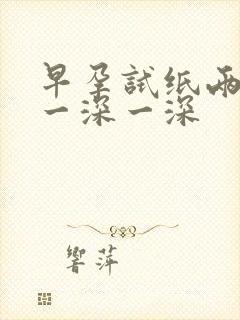 早孕試纸兩
一深一深
響萍